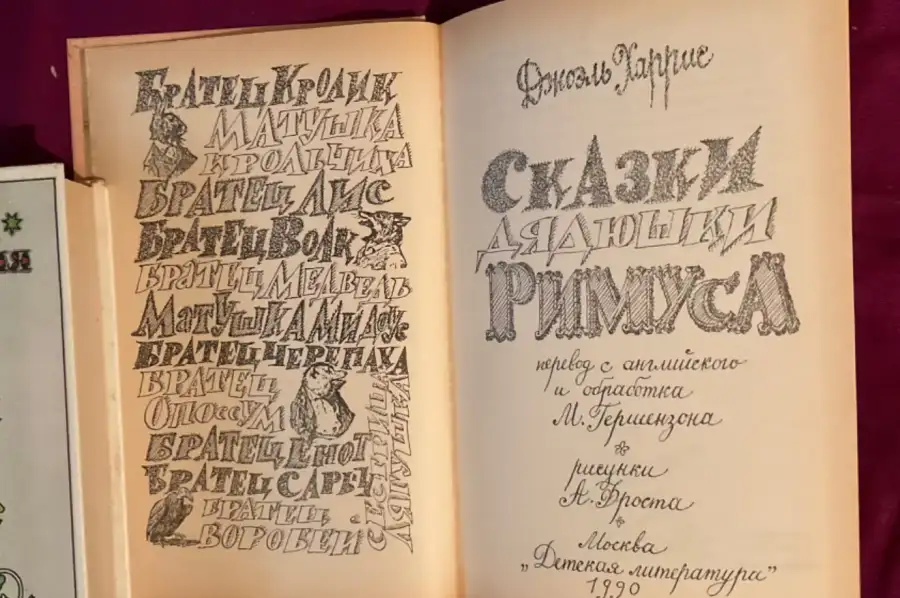 БРАТЕЦ КРОЛИК
МАТУШКА
КРОЛЬЧИХА
БРАТЕЦ ЛИС
БРАТЕЦ ВОЛК
БРАТЕЦ МЕДВЕДЬ
МАТУШКА МИДОУС
БРАТЕЦ ЧЕРЕПАХА
БРАТЕЦ
ОПОССУМ
БРАТЕЦ ЕНОТ
БРАТЕЦ САРЫЧ
БРАТЕЦ
ВОРОБЕЙ
СЕСТРИЦА
ЛЯГУШКА
Джоэль Харрис
СКАЗКИ
ДЯДЮШКИ
РИМУСА
перевод с английского
и обработка
М. Гершензона
рисунки
А. Фроста
Москва
„Детская литература"
1990